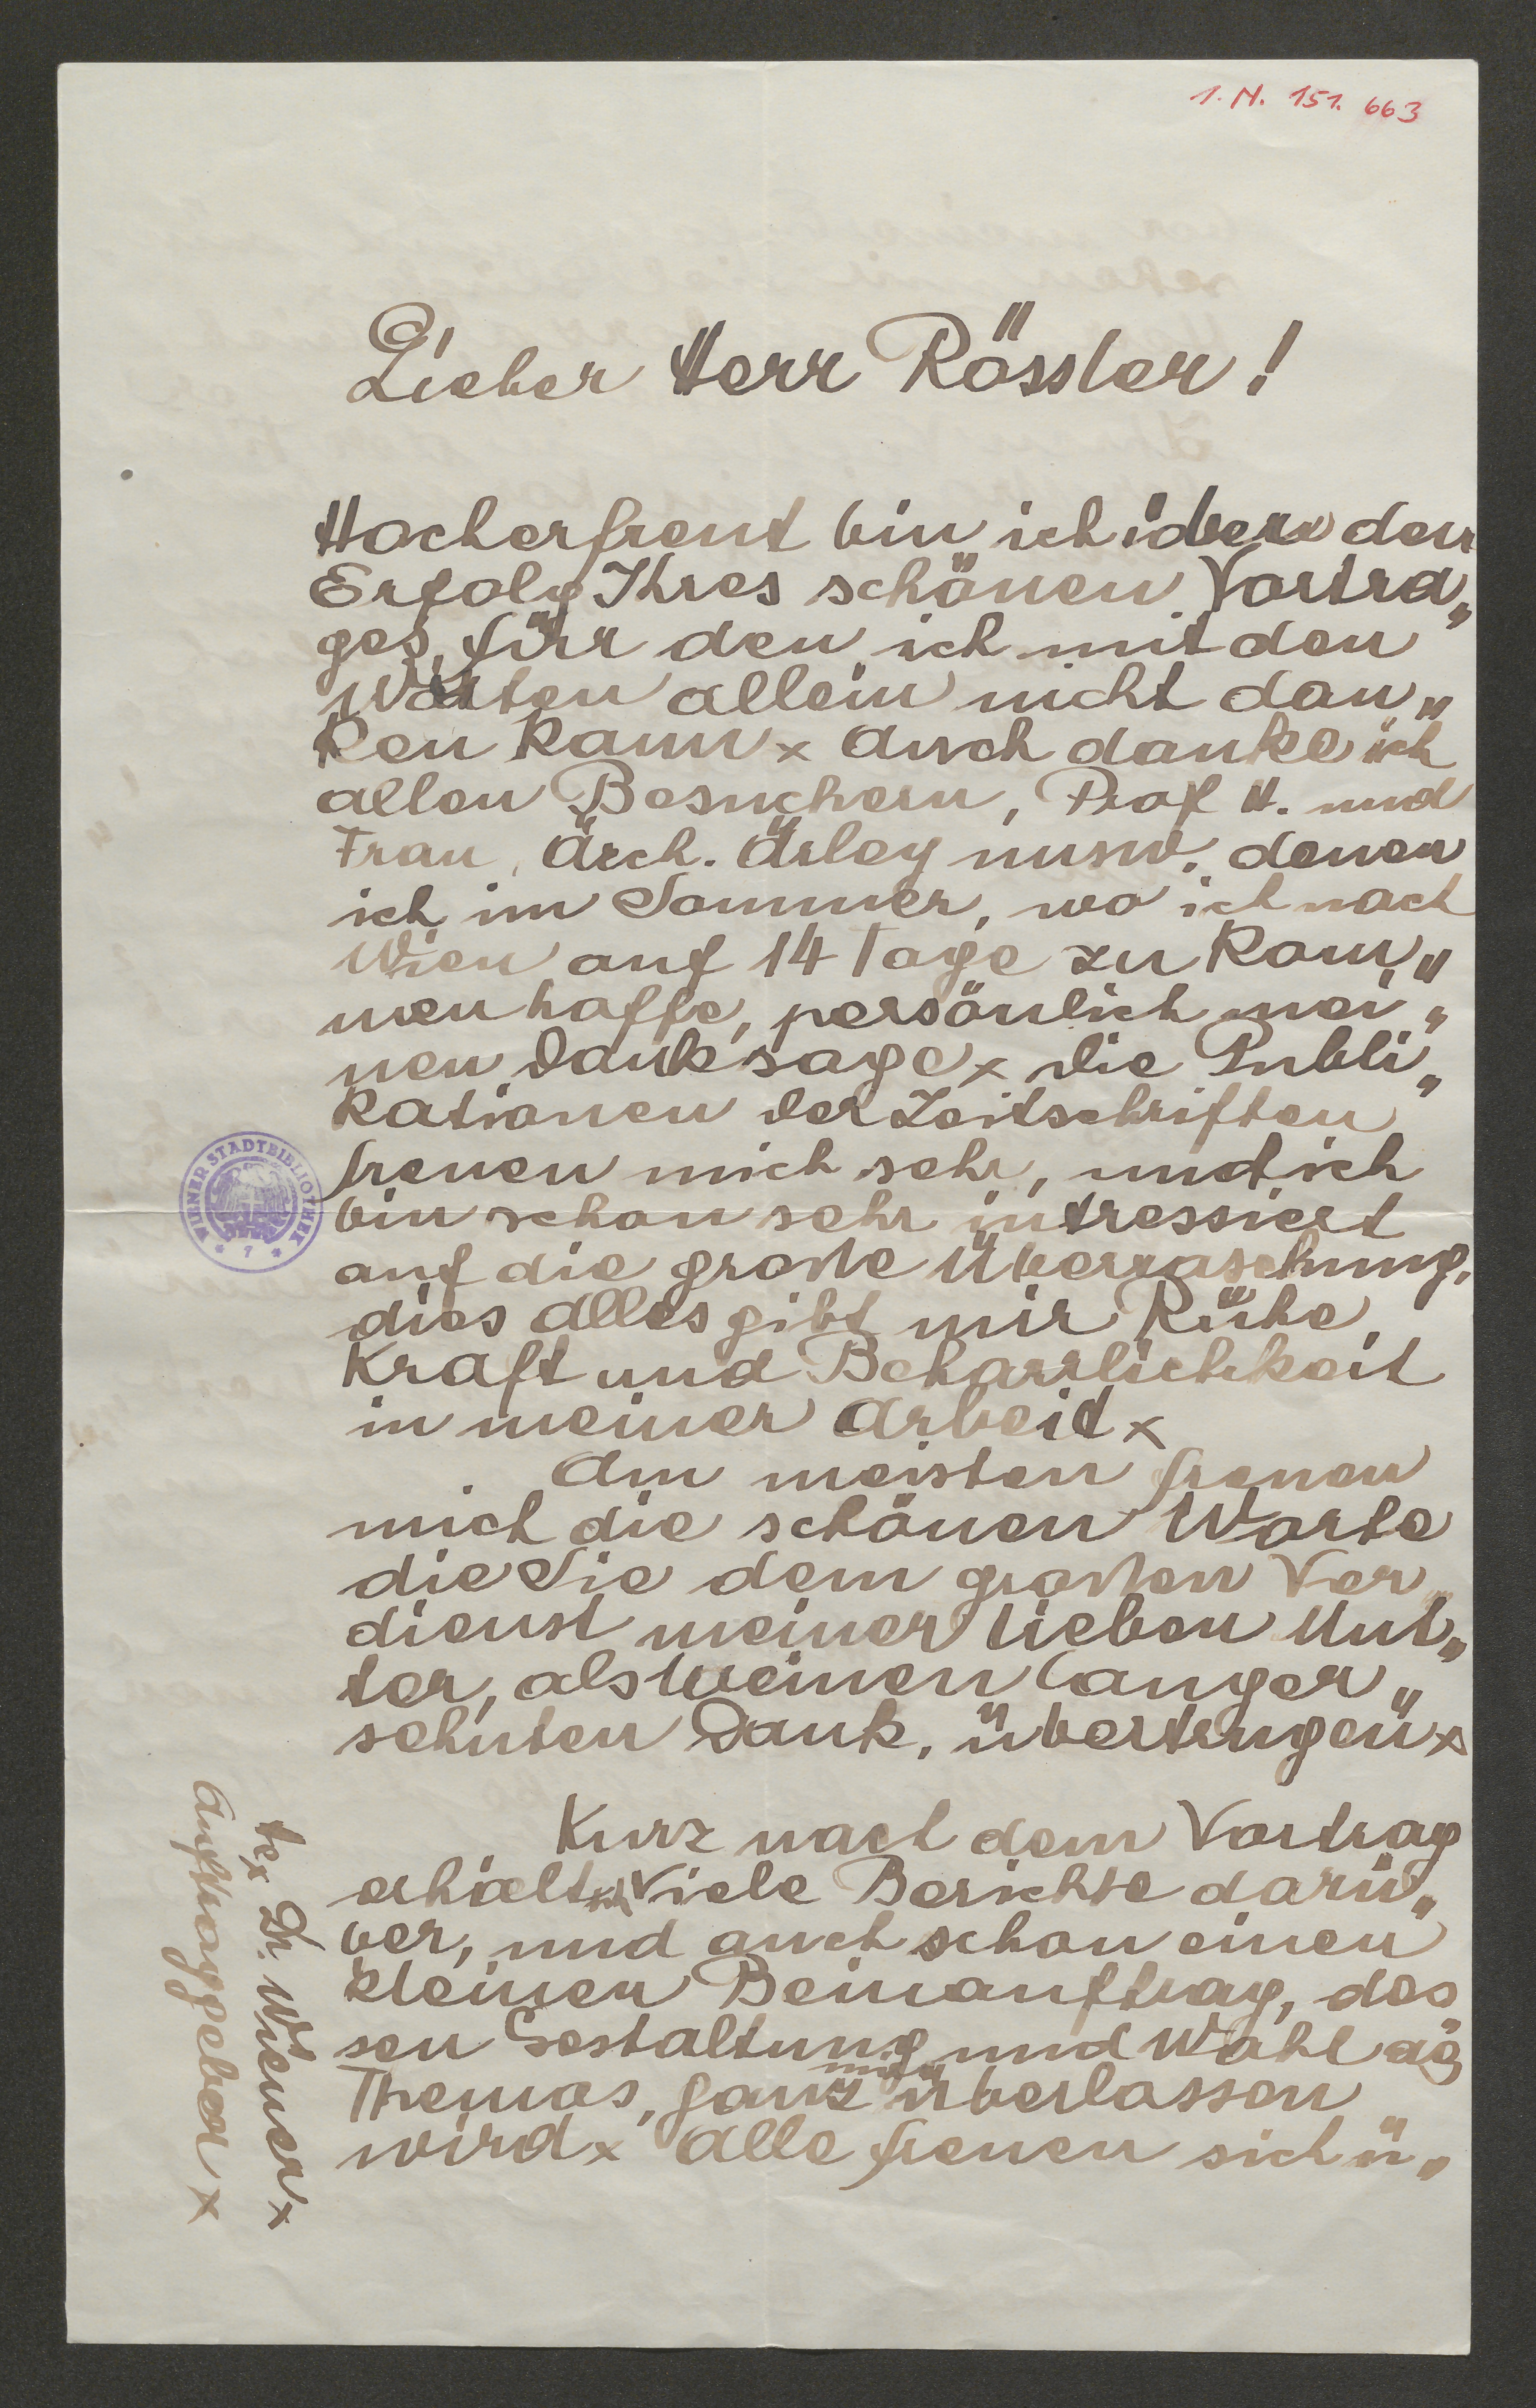 1. N. 151. 663
Lieber Herr Rössler!
Hocherfreut bin ich über den
Erfolg Ihres schönen Vortra„
ges, für den ich mit den
Worten allein nicht dan„
ken kann x Auch danke ich
allen Besuchern, Prof H. und
Frau, Arch. Örley uusw. denen
ich im Sommer, wo ich nach
Wien auf 14 Tage zu kom„
men hoffe, persönlich mei„
nen Dank sage x Die Publi„
kationen der Zeitschriften
freuen mich sehr, und ich
bin schon sehr intressiert
auf die große Überraschung,
dies alles gibt mir Ruhe,
Kraft und Beharrlichkeit
in meiner Arbeit x
Am meisten freuen
mich die schönen Worte
die Sie dem großen Ver„
dienst meiner lieben Mut„
ter, als meinen langer„
sehnten Dank, übertrugen x
Kurz nach dem Vortrag
erhielt ich viele Berichte darü„
ber, und auch schon einen
kleinen Beinauftrag, des
sen Gestaltung und Wahl des
Themas, ganz mir überlassen
wird x Alle freuen sich ü„
te x Dr. Wiener x
Auftraggeber x
WIENER STADTBIBLIOTHEK
* 7 *